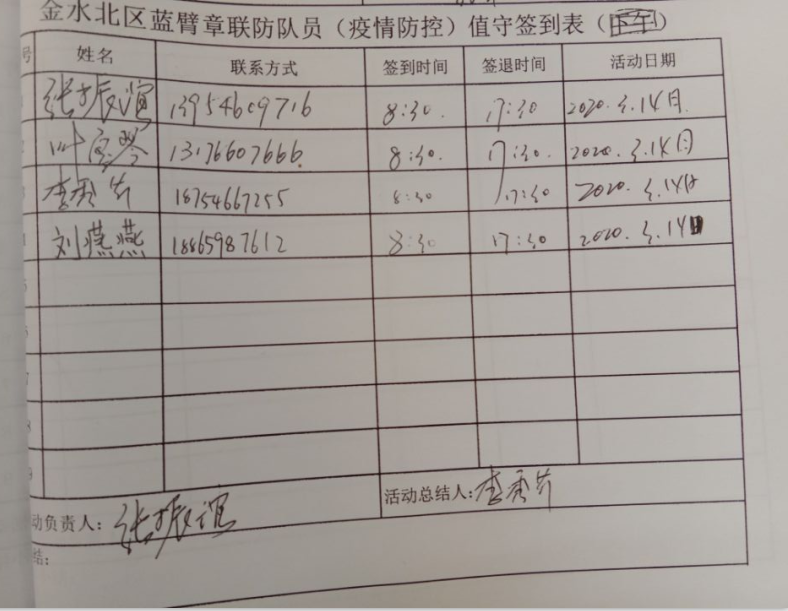 金水北区蓝臂章联防队员（疫情防控）值守签到表（下午）
号 姓名 联系方式 签到时间 签退时间 活动日期
张振谊 13954609716 8:30. 17:30 2020.3.14日.
叶 13176607666 8:30. 17:30. 2020.3.14日
李秀芹 18754667255 8:30 17:30 2020.3.14日
刘燕燕 18865987612 8:30 17:30 2020.3.14日
动负责人：张振谊 活动总结人：李秀芹
结：